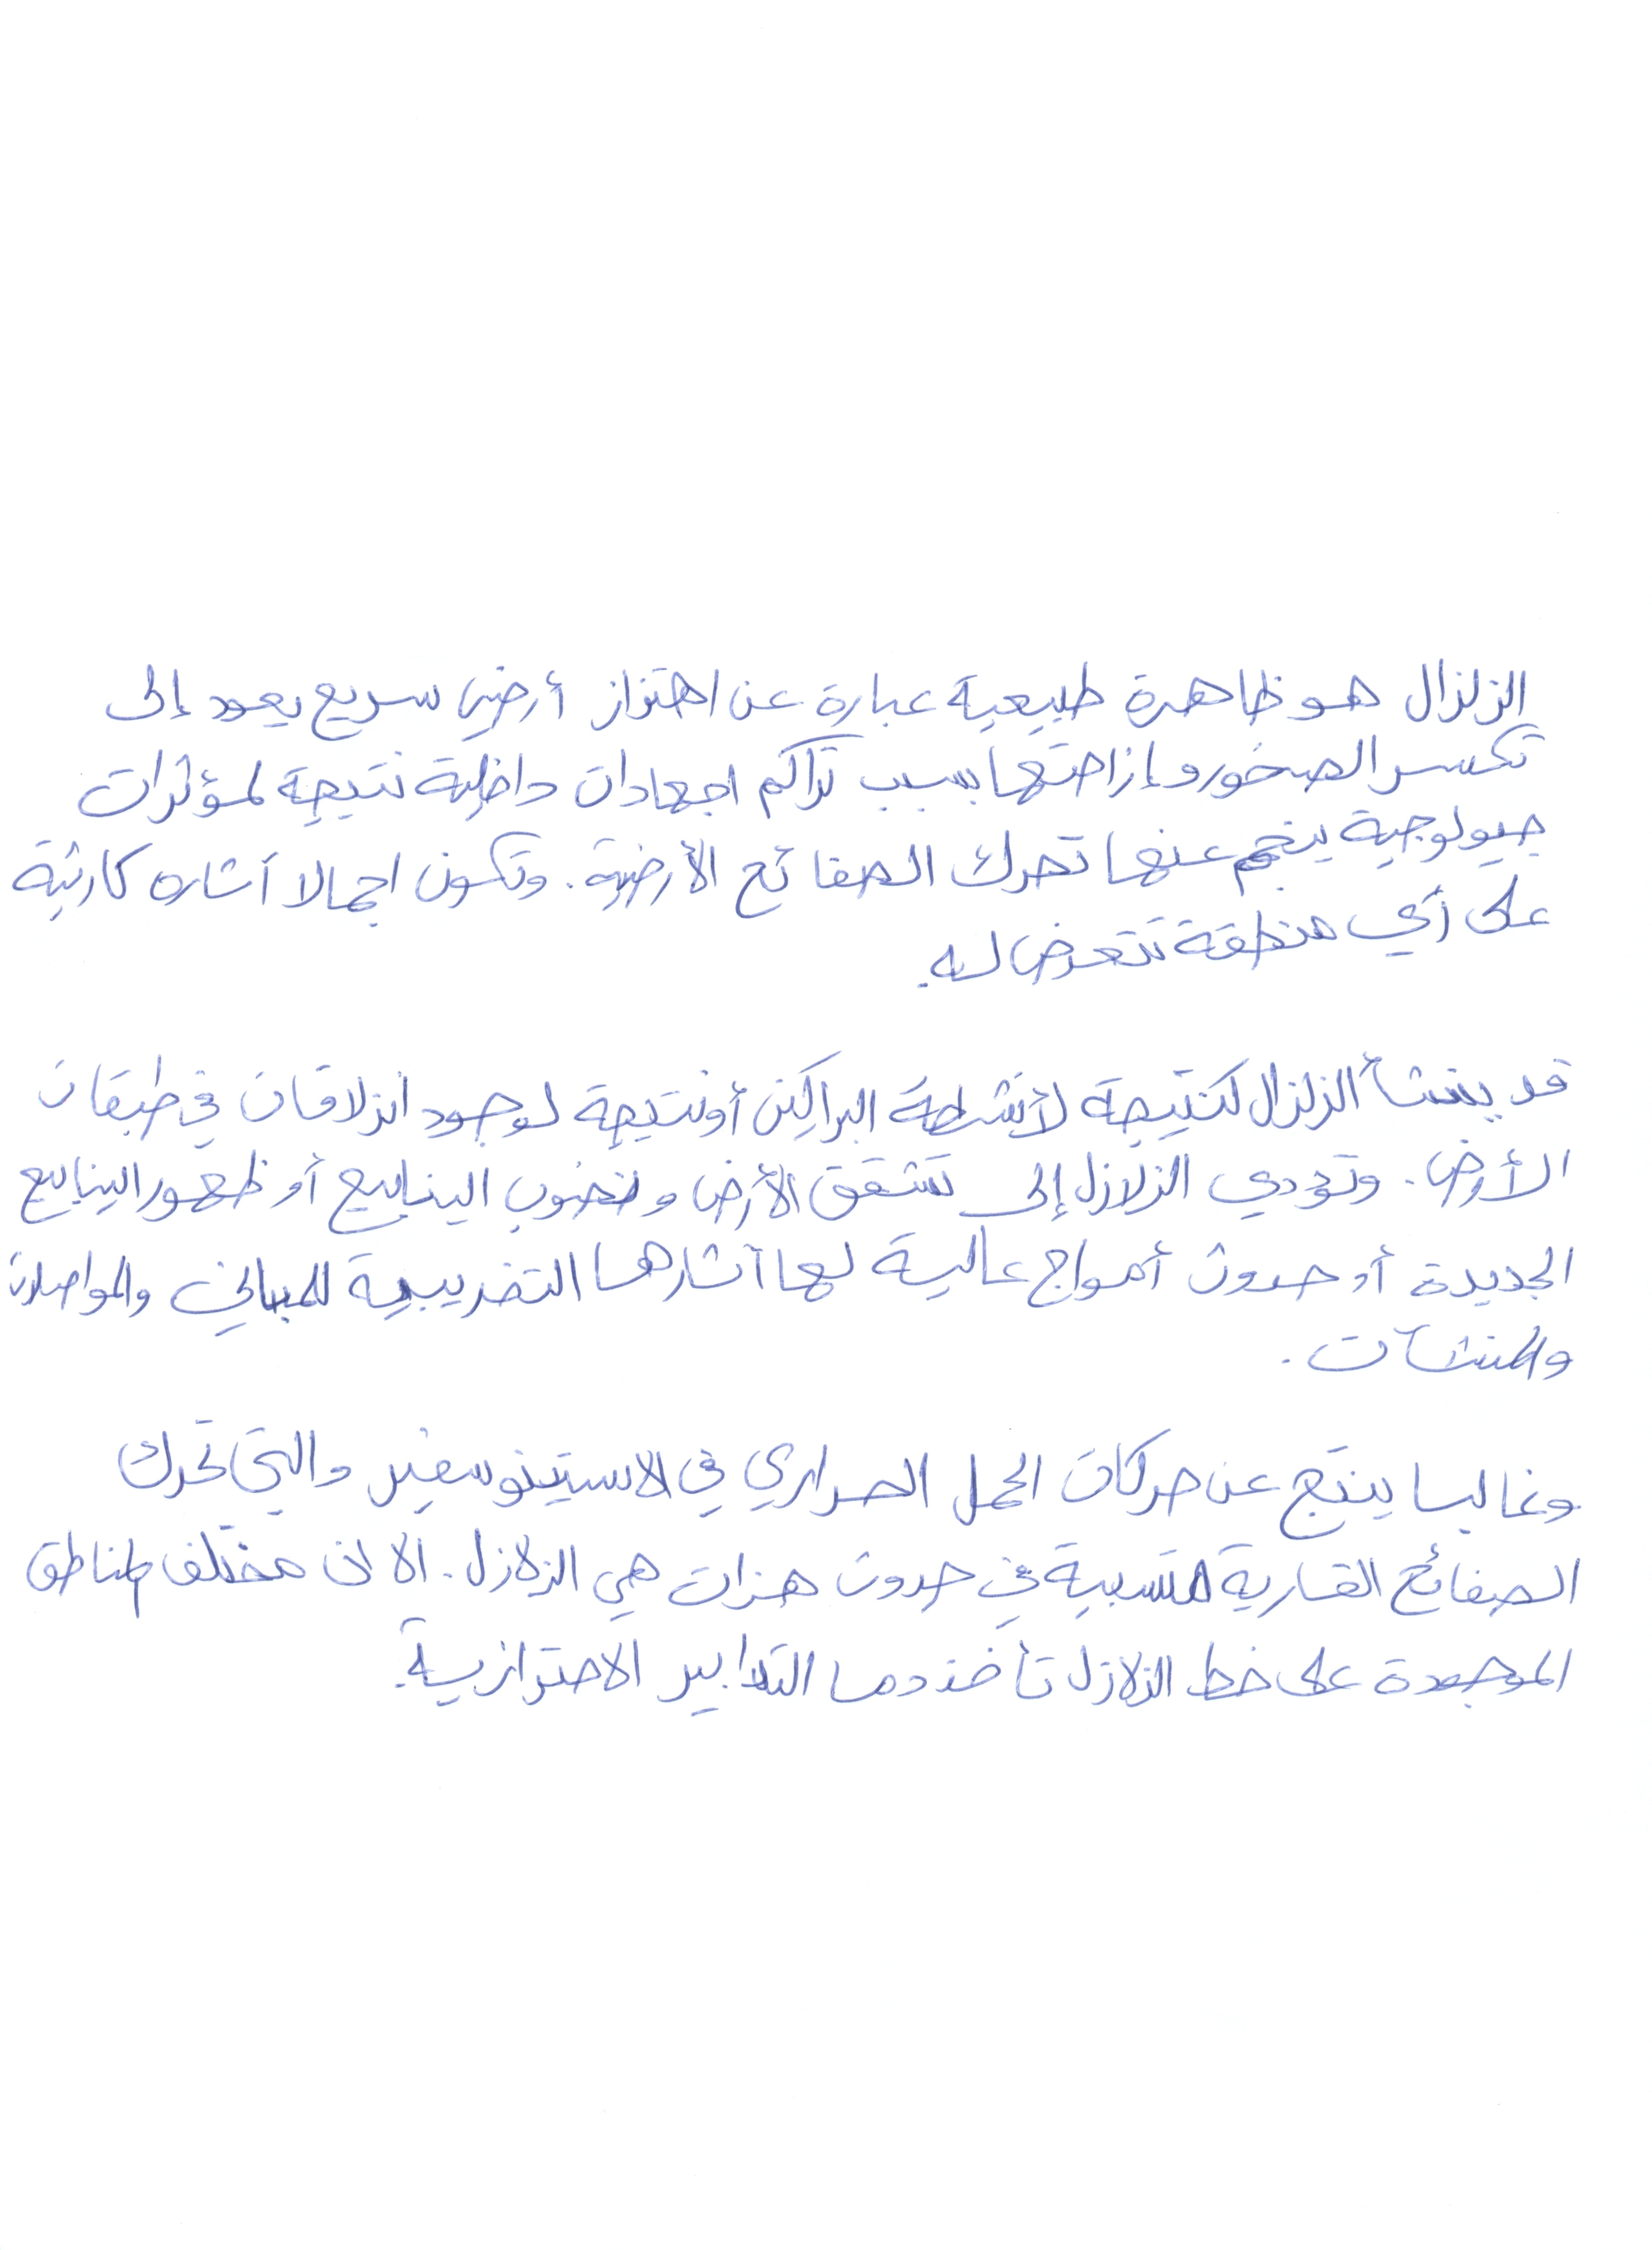 الزلزال هو ظاهرة طبيعية عبارة عن اهتزاز أرضي سريع يعود إلى
تكسر الصخور وإزاحتها بسبب تراكم اجهادات داخلية نتيجة لمؤثرات
جيولوجية ينجم عنها تحرك الصفائح الأرضية. وتكون اجمالا آثاره كارثية
على أي منطقة تتعرض له.
قد ينشأ الزلزال كنتيجة لأنشطة البراكين أو نتيجة لوجود انزلاقات في طبقات
الأرض. وتؤدي الزلازل إلى تشقق الأرض ونضوب الينابيع أو ظهور الينابيع
الجديدة أو حدوث أمواج عالية لها آثارها التخريبية للمباني والمواصلات
والمنشآت.
وغالبا ينتج عن حركات الحمل الحراري في الاستينوسفير والتي تحرك
الصفائح القارية متسببة في حدوث هزات هي الزلازل. الا ان مختلف المناطق
الموجودة على خط الزلازل تأخذ دوما التدابير الاحترازية.